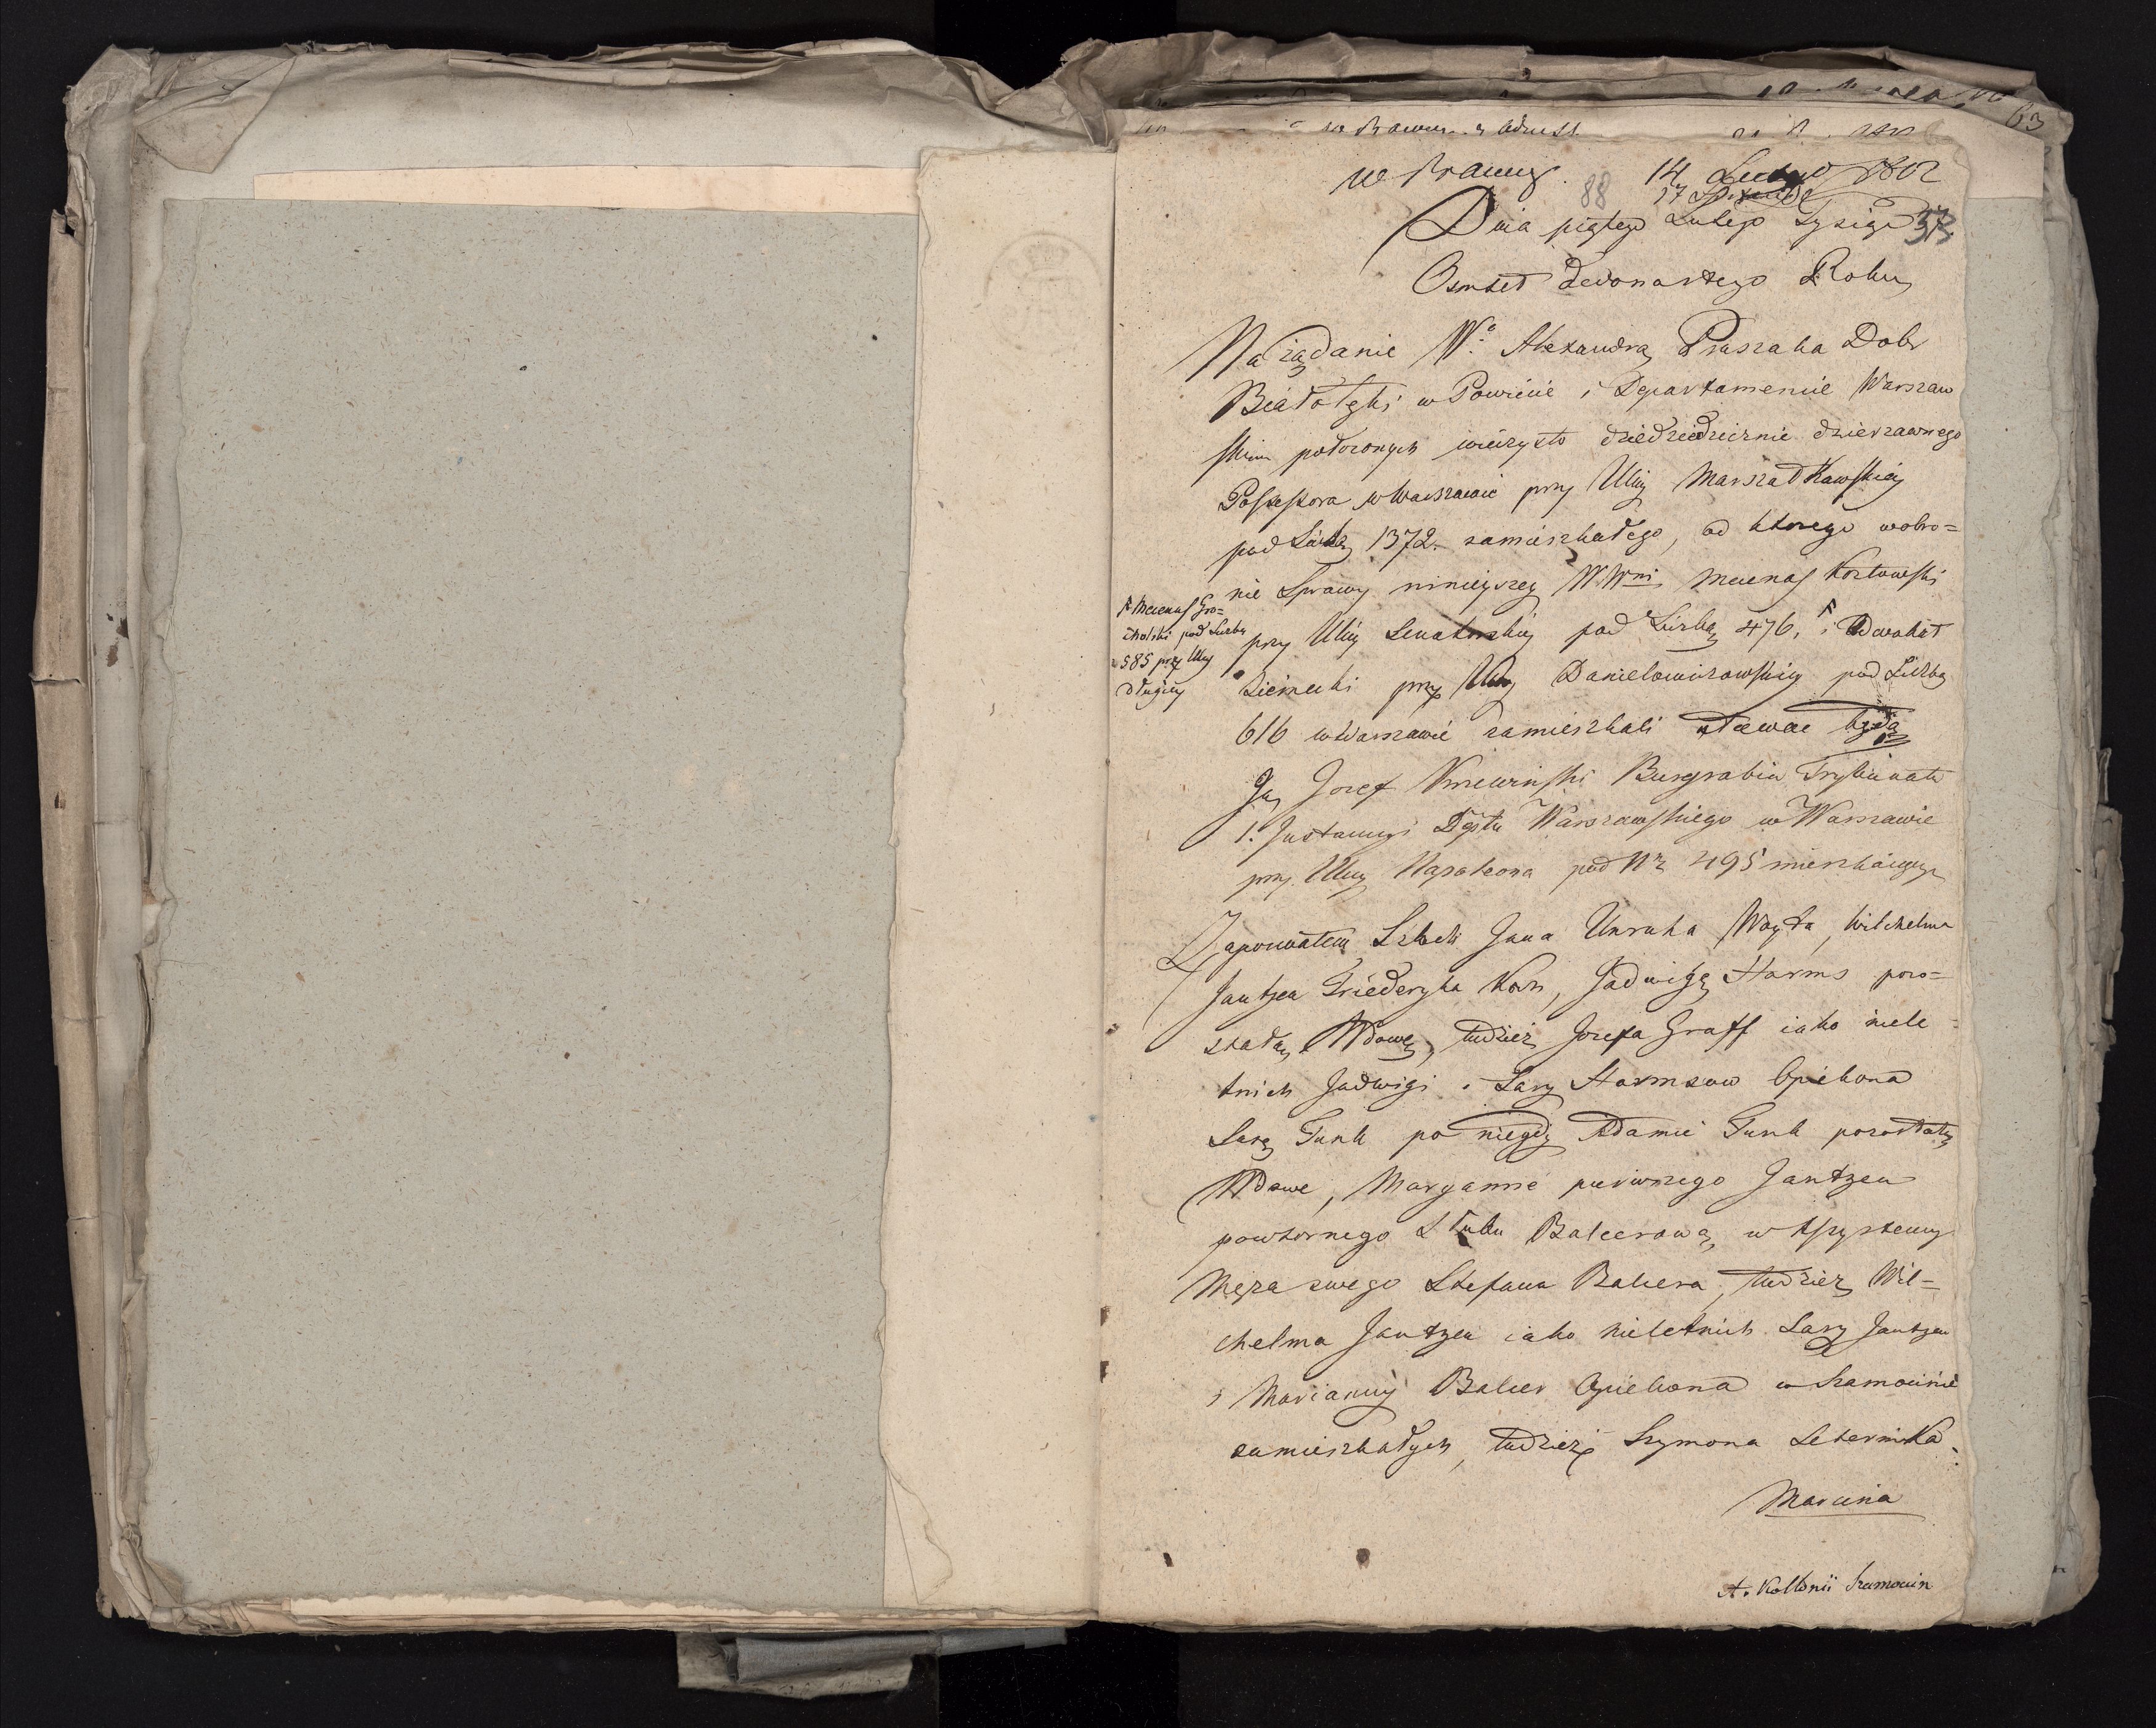 63
14 Lutego 1802
88
Dnia piątego Lutego Tysiąc
Osmset dwonastego Roku
Na żądanie Wº Alexandra Praszaka Dobr
Białołęki w Powiecie i Departamencie Warszaw
skim położonych wieczysto dziedzicznie dzierzawnego
Possessora w Warszawie przy Ulicy Marszałkowskiey
pod Liczbą 1372. zamieszkałego, od ktorego w obro=
nie Sprawy ninieyszey WWni Mecenas Kozłowski
przy Ulicy Senatorskiey pod Liczbą 476, i Adwokat
Mecenas Gro=
cholski pod Liczbą
585 przy Ulicy
długiey
Ziemecki przy Ulicy Danielowiczowskiey pod Liczbą
616 w Warszawie zamieszkali stawac będą
Ja Jozef Kmiewinski Burgrabia Trybunału
1. Instancyi Dptu Warszawskiego w Warszawie
przy Ulicy Napoleona pod Nr 495 mieszkaiący
Zapozwałem Szlach Jana Unruha Woyta, Wilchelma
Jantzen Friederyka Kohn, Jadwigę Harms pozo=
stałą Wdowę, tudzież Jozefa Graff iako niele=
tnich Jadwigi i Sary Harmsow Opiekona
Sarę Funk po niegdy Adamie Funk pozostałą
Wdowę, Maryannę pierwszego Jantzen
powtornego Slubu Balcerową, w Assystency
Męża swego Stefana Balcera, tudzież Wil=
chelma Jantzen iako nieletnich Sary Jantzen
i Marianny Balcer Opiekona w Szamocinie
zamieszkałych, tudzież Szymona Leternika
Marcina
A. Kollonii Szamocin